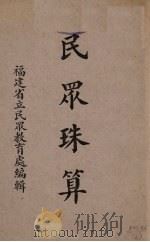 民眾珠算
福建省立民眾教育處編輯